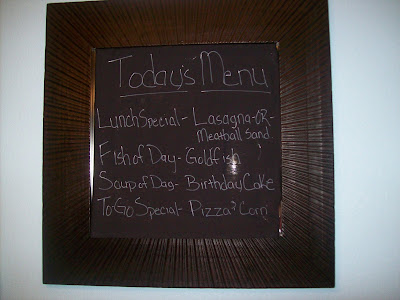 Today's Menu
Lunch Special - Lasagna -OR-
Meatball Sand.
Fish of Day - Goldfish
Soup of Day - Birthday Cake
To-Go Special - Pizza & Corn